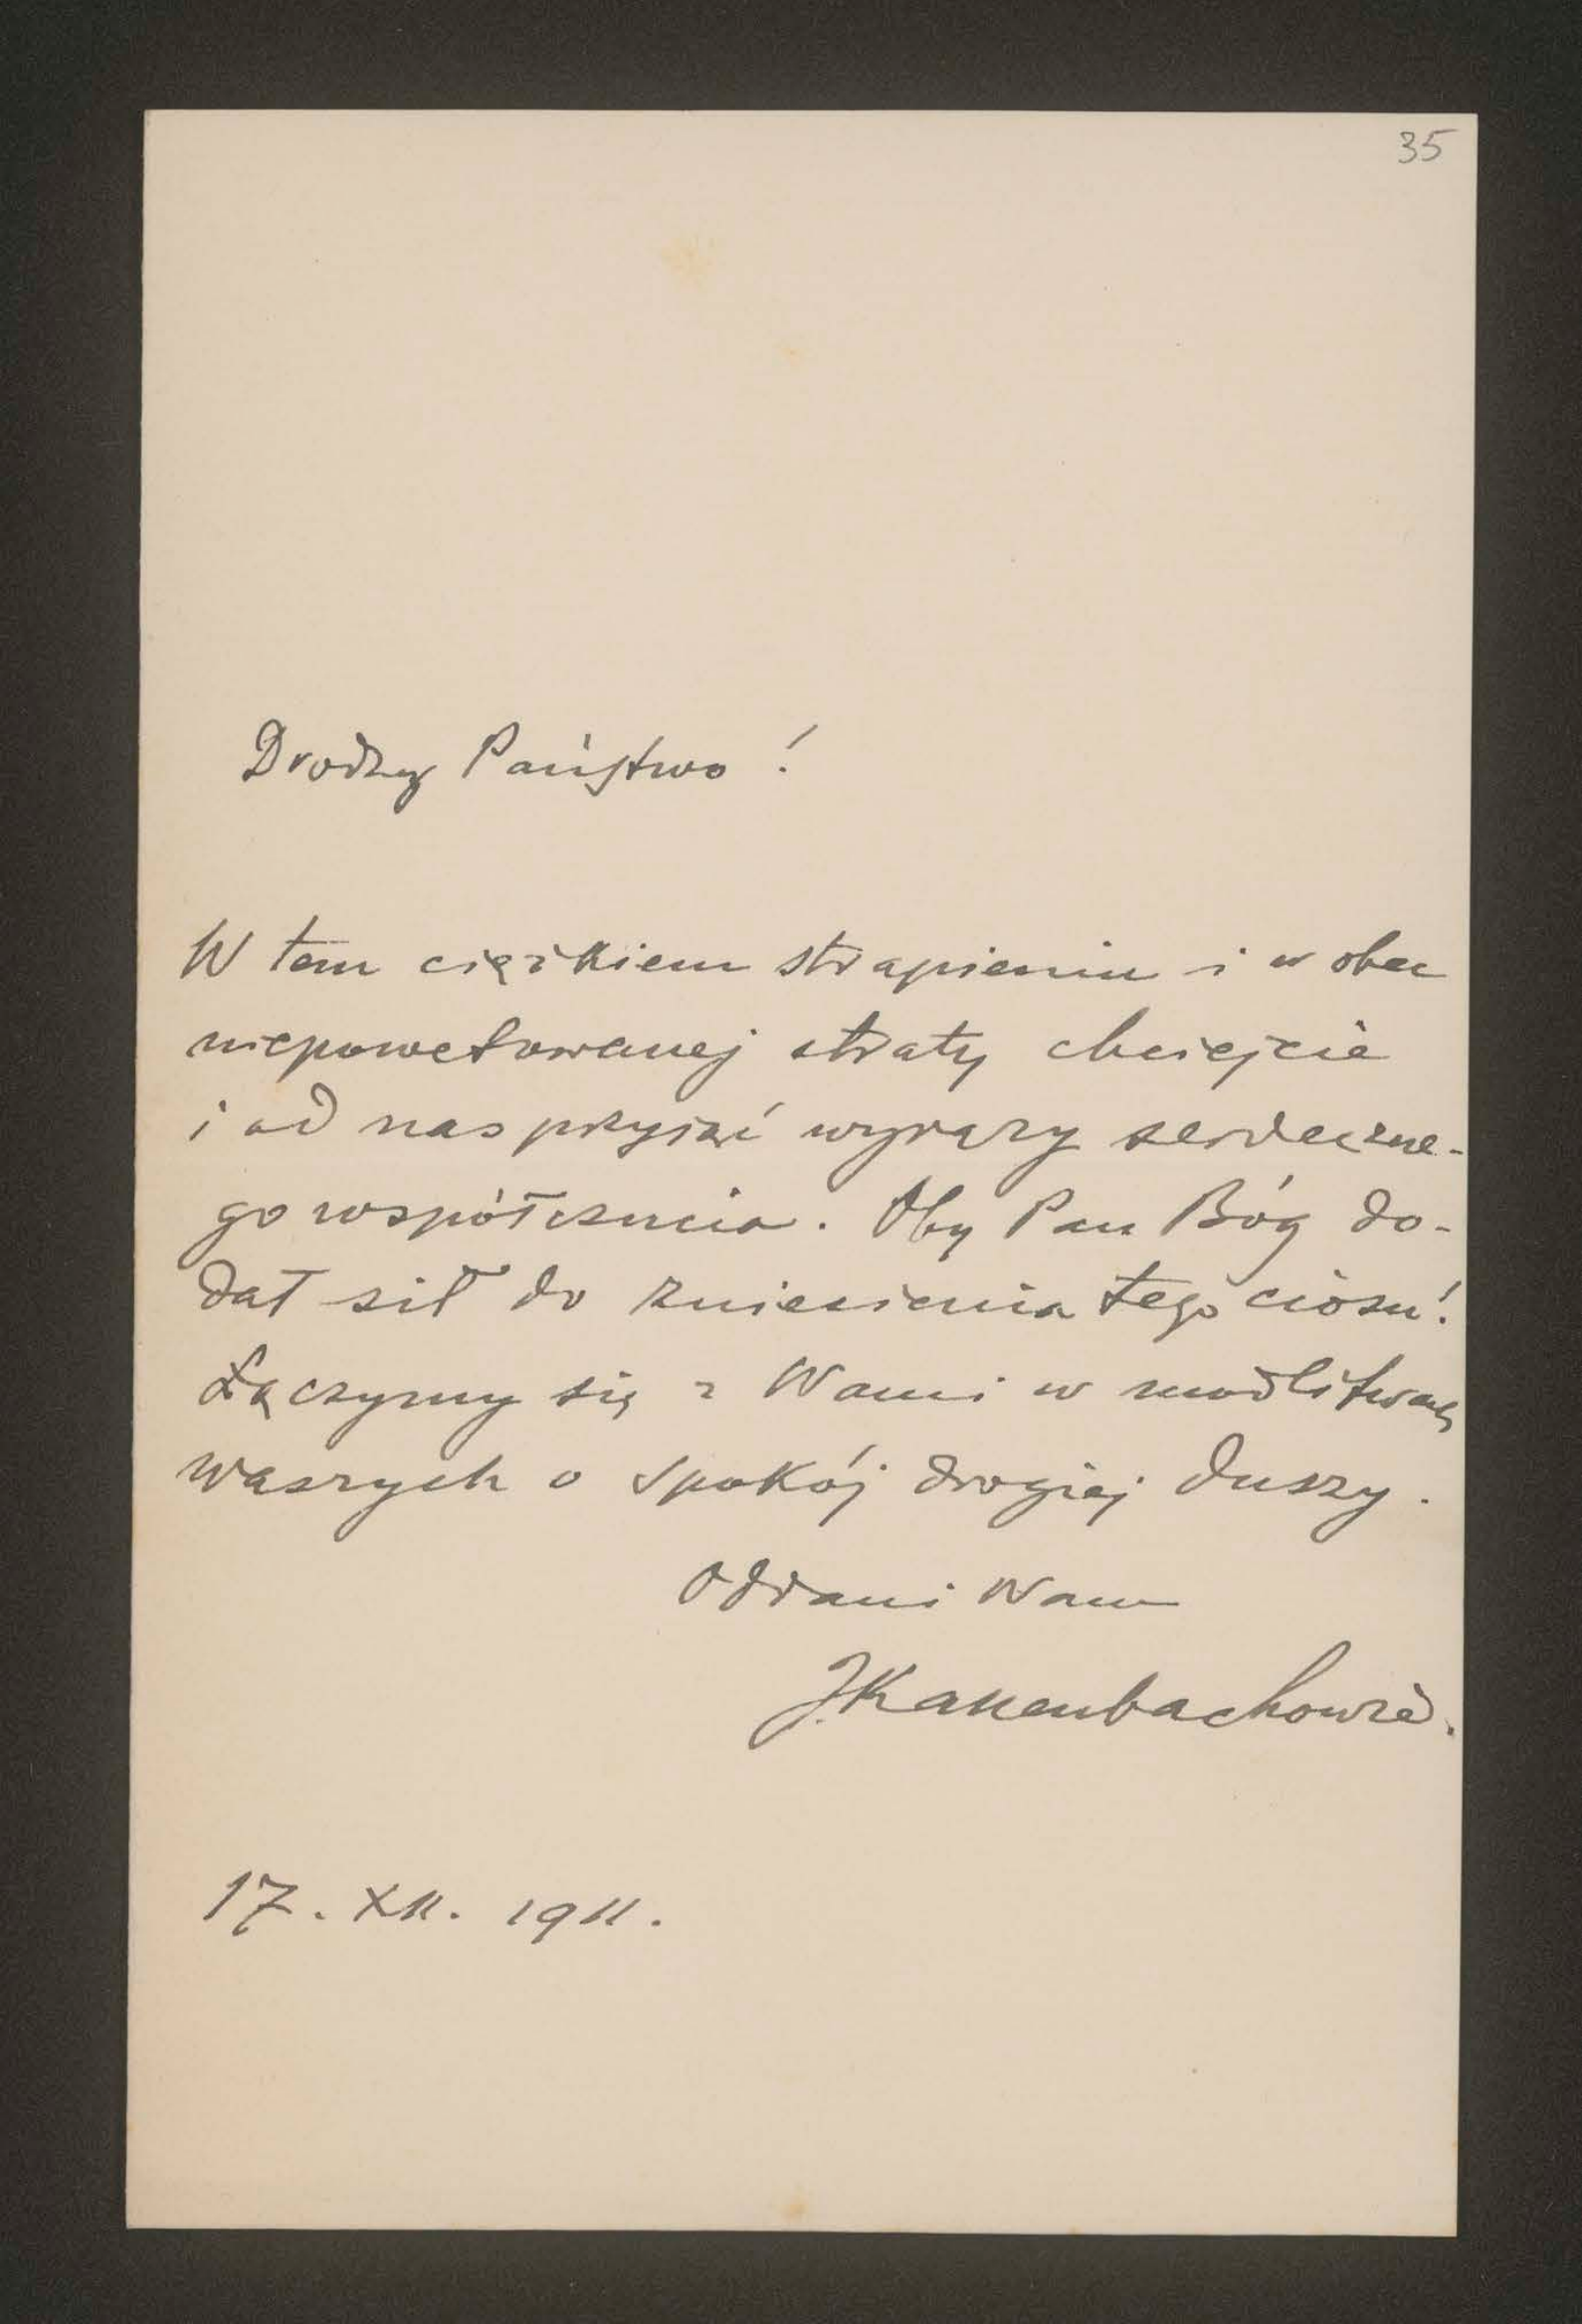 35
Drodzy Państwo!
W tem ciężkiem strapieniu i wobec
niepowetowanej straty chciejcie
i od nas przyjąć wyrazy serdeczne-
go współczucia. Oby Pan Bóg do-
dał sił do zniesienia tego ciosu!
Łączymy się z Wami w modlitwach
waszych o spokój drogiej duszy.
Oddani Wam
J. Kallenbachowie.
17. XII. 1911.